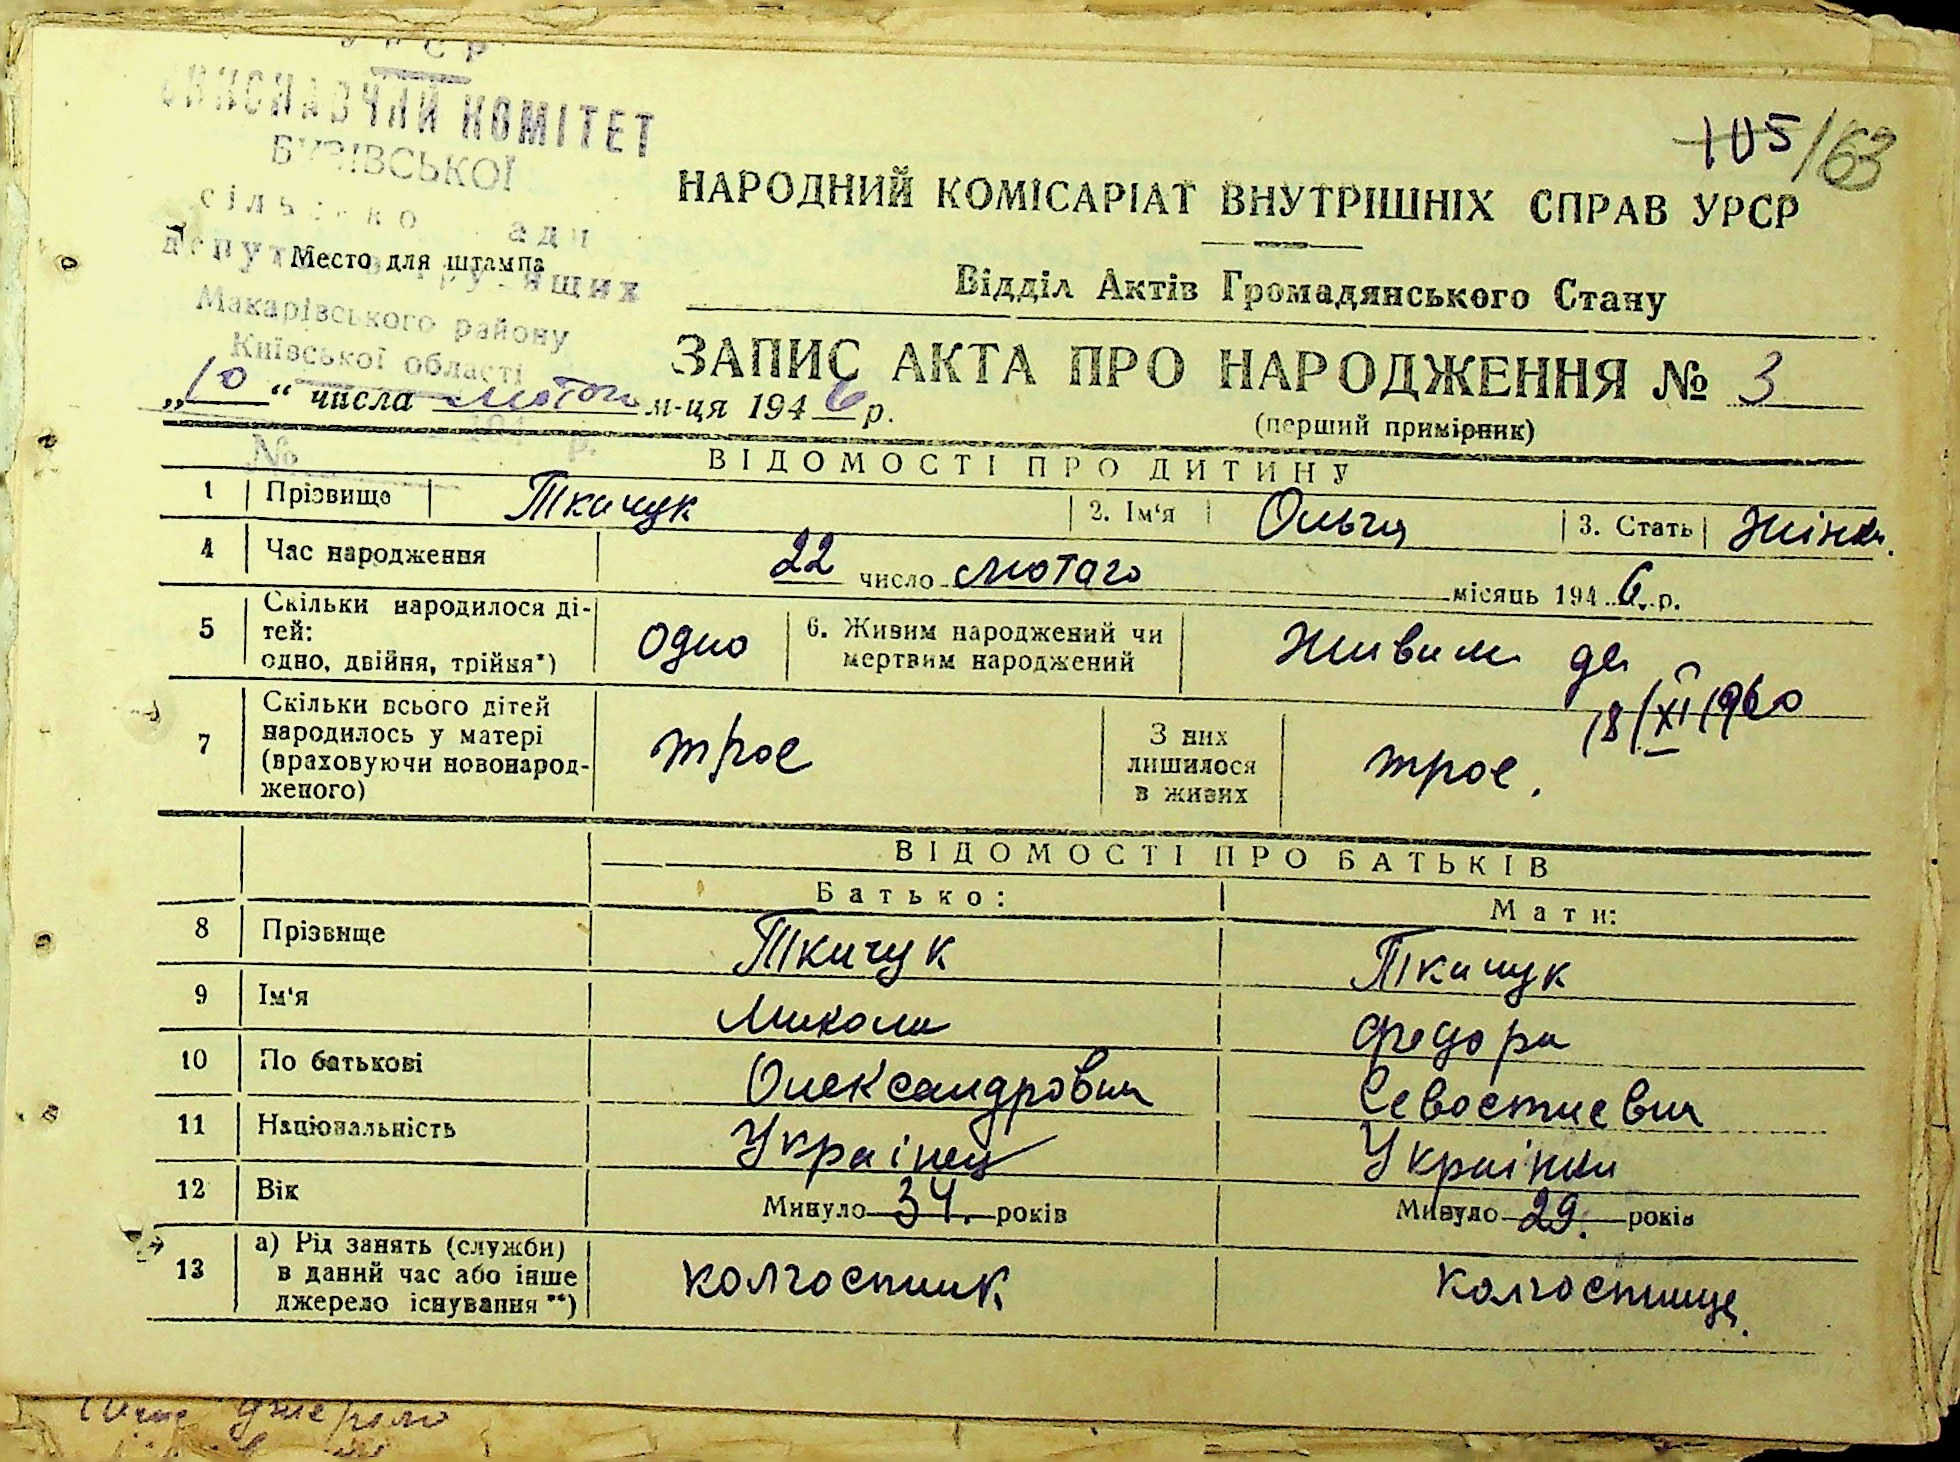 УРСР
ВИКОНАВЧИЙ КОМІТЕТ
БУЗІВСЬКОЇ
депутатів трудящих
Макарівського району
Київської області
№ 194 р.
Место для штампа
105/63
НАРОДНИЙ КОМІСАРІАТ ВНУТРІШНІХ СПРАВ УРСР
Відділ Актів Громадянського Стану
ЗАПИС АКТА ПРО НАРОДЖЕННЯ № 3
„10“ числа лютого м-ця 1946 р.
(перший примірник)
ВІДОМОСТІ ПРО ДИТИНУ
1 Прізвище Ткачук 2. Ім‘я Ольга 3. Стать Жінка.
4 Час народження 22 число лютаго місяць 1946 р.
5 Скільки народилося ді-
тей:
одно, двійня, трійня*) одно 6. Живим народжений чи
мертвим народжений Живим да
18/XI 1960
7 Скільки всього дітей
народилось у матері
(враховуючи новонарод-
женого) трое З них
лишилося
в живих трое.
ВІДОМОСТІ ПРО БАТЬКІВ
Батько: Мати:
8 Прізвище Ткачук Ткачук
9 Ім‘я Микола Федора
10 По батькові Олександрович Севостиевна
11 Національність Українец Українка
12 Вік Минуло 34. років Минуло 29. років
13 а) Рід занять (служби)
в даний час або інше
джерело існування **) колгоспник колгоспница.
джерело